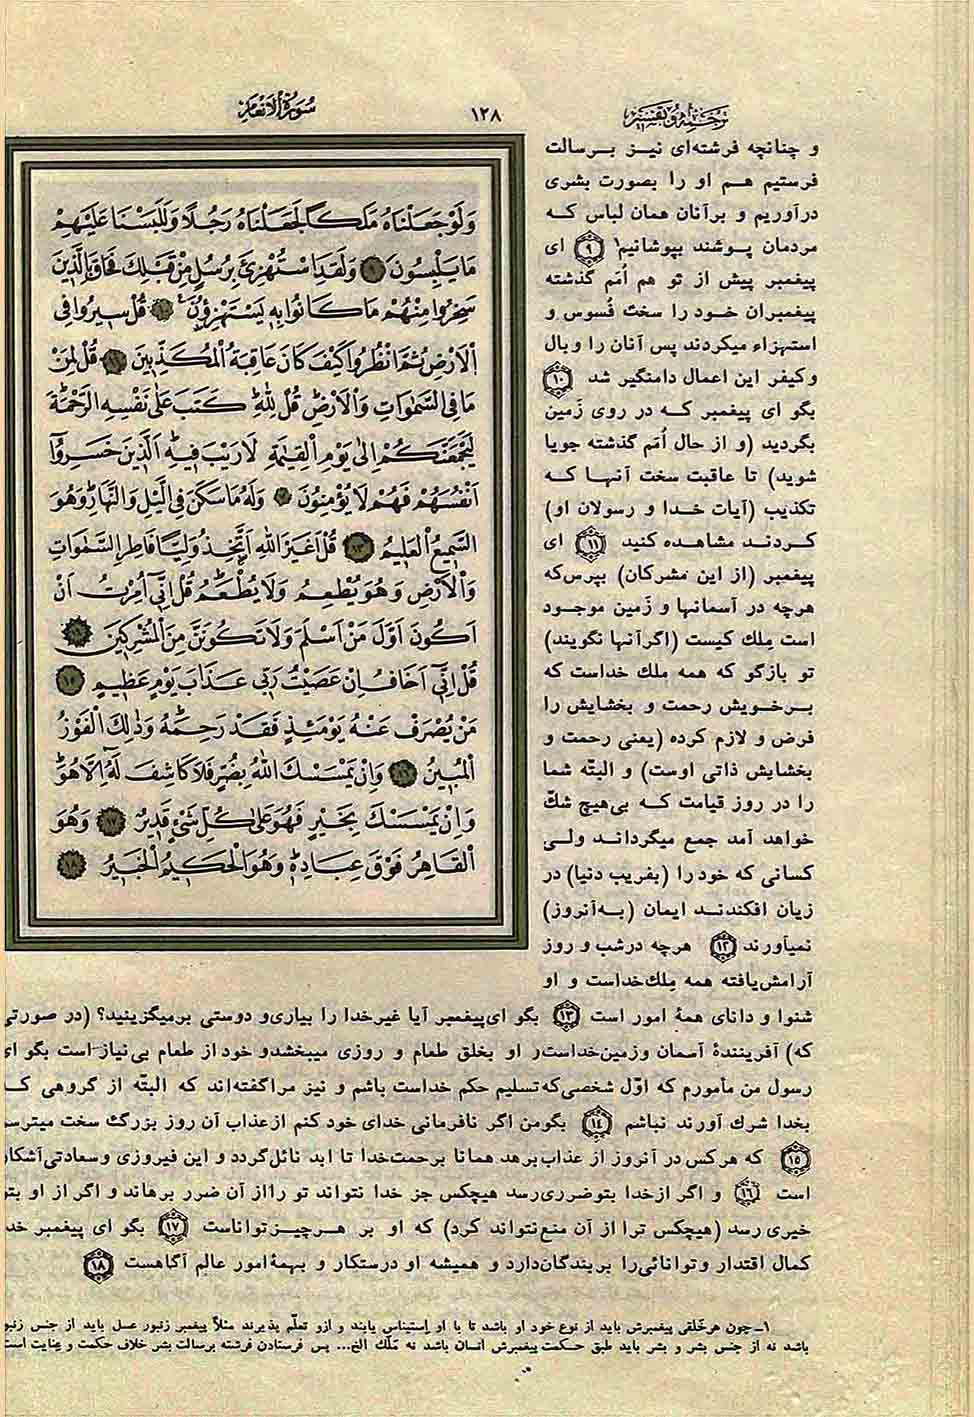 ترجمه و تفسیر ۱۲۸ سُورَةُ الْاَنْعَامِ
و چنانچه فرشته‌ای نیـز بـرسالت
فرستیم هـم او را بصورت بشری
درآوریم و برآنان همان لباس کـه
مردمان پـوشند بپوشانیم۱ ﴿۹﴾ ای
پیغمبر پیش از تو هم اُمَم گذشته
پیغمبران خـود را سخت فُسوس و
استهزاء میکردند پس آنان را وبال
وکیفر این اعمال دامنگیر شد ﴿۱۰﴾
بگو ای پیغمبر کـه در روی زَمین
بگردید (و از حال اُمَم گذشته جویا
شوید) تا عاقبت سخت آنهـا کـه
تکذیب (آیات خـدا و رسولان او)
کـردنـد مشاهده کنید ﴿۱۱﴾ ای
پیغمبر (از این مشرکان) بپرس‌که
هرچه در آسمانها و زَمین موجـود
است مِلك کیست (اگرآنها نگویند)
تو بازگو که همه ملك خداست که
بـرخـویش رحمت و بخشایش را
فرض و لازم کرده (یعنی رحمت و
بخشایش ذاتی اوست) و البتّه شما
را در روز قیامت کـه بی‌هیچ شكّ
خواهد آمد جمع میگردانـد ولـی
کسانی که خود را (بفریب دنیا) در
زیان افکندنـد ایمان (بـه‌آنروز)
نمیآورند ﴿۱۲﴾ هرچه درشب و روز
آرامش‌یافته همه مِلك‌خداست و او
وَلَوْ جَعَلْنَاهُ مَلَكًا لَجَعَلْنَاهُ رَجُلًا وَلَلَبَسْنَا عَلَيْهِمْ
مَا يَلْبِسُونَ ﴿۹﴾ وَلَقَدِ اسْتُهْزِئَ بِرُسُلٍ مِنْ قَبْلِكَ فَحَاقَ بِالَّذِينَ
سَخِرُوا مِنْهُمْ مَا كَانُوا بِهِ يَسْتَهْزِؤُنَ ﴿۱۰﴾ قُلْ سِيرُوا فِي
الْاَرْضِ ثُمَّ انْظُرُوا كَيْفَ كَانَ عَاقِبَةُ الْمُكَذِّبِينَ ﴿۱۱﴾ قُلْ لِمَنْ
مَا فِي السَّمٰوَاتِ وَالْاَرْضِ قُلْ لِلّٰهِ كَتَبَ عَلٰى نَفْسِهِ الرَّحْمَةَ
لَيَجْمَعَنَّكُمْ اِلٰى يَوْمِ الْقِيٰمَةِ لَا رَيْبَ فِيهِ اَلَّذِينَ خَسِرُوا
اَنْفُسَهُمْ فَهُمْ لَا يُؤْمِنُونَ ﴿۱۲﴾ وَلَهُ مَا سَكَنَ فِي الَّيْلِ وَالنَّهَارِ وَهُوَ
السَّمِيعُ الْعَلِيمُ ﴿۱۳﴾ قُلْ اَغَيْرَ اللّٰهِ اَتَّخِذُ وَلِيًّا فَاطِرِ السَّمٰوَاتِ
وَالْاَرْضِ وَهُوَ يُطْعِمُ وَلَا يُطْعَمُ قُلْ اِنِّي اُمِرْتُ اَنْ
اَكُونَ اَوَّلَ مَنْ اَسْلَمَ وَلَا تَكُونَنَّ مِنَ الْمُشْرِكِينَ ﴿۱۴﴾
قُلْ اِنِّي اَخَافُ اِنْ عَصَيْتُ رَبِّي عَذَابَ يَوْمٍ عَظِيمٍ ﴿۱۵﴾
مَنْ يُصْرَفْ عَنْهُ يَوْمَئِذٍ فَقَدْ رَحِمَهُ وَذٰلِكَ الْفَوْزُ
الْمُبِينُ ﴿۱۶﴾ وَاِنْ يَمْسَسْكَ اللّٰهُ بِضُرٍّ فَلَا كَاشِفَ لَهُ اِلَّا هُوَ
وَاِنْ يَمْسَسْكَ بِخَيْرٍ فَهُوَ عَلٰى كُلِّ شَيْءٍ قَدِيرٌ ﴿۱۷﴾ وَهُوَ
الْقَاهِرُ فَوْقَ عِبَادِهِ وَهُوَ الْحَكِيمُ الْخَبِيرُ ﴿۱۸﴾
شنوا و دانای همۀ امور است ﴿۱۳﴾ بگو ای‌پیغمبر آیا غیرخدا را بیاری‌و دوستی برمیگزینید؟ (در صورتی
که) آفرینندۀ آسمان وزمین‌خداست‌و او بخلق طعام و روزی میبخشدو خود از طعام بی‌نیاز است بگو ای
رسول من مأمورم که اوّل شخصی‌که‌تسلیم حکم خداست باشم و نیز مراگفته‌اند که البتّه از گروهی کـه
بخدا شرك آورند نباشم ﴿۱۴﴾ بگومن اگر نافرمانی خدای خود کنم ازعذاب آن روز بزرگ سخت میترسم
﴿۱۵﴾ که هرکس در آنروز از عذاب‌برهد همانا برحمت‌خدا تا ابد نائل‌گردد و این فیروزی وسعادتی‌آشکار
است ﴿۱۶﴾ و اگر ازخدا بتوضرری‌رسد هیچکس جز خدا نتواند تو رااز آن ضرر برهاند و اگر از او بتو
خیری رسد (هیچکس ترا از آن منع‌نتواند کرد) که او بر هـرچیـز تواناست ﴿۱۷﴾ بگو ای پیغمبر خدا
کمال اقتدار وتوانائی‌را بربندگان‌دارد و همیشه او درستکار و بهمۀ‌امور عالم آگاهست ﴿۱۸﴾
۱ـ چون هرخَلقی پیغمبرش باید از نوع خود او باشد تا با او استیناس یابند و ازو تعلّم پذیرند مثلاً پیغمبر زنبور عسل باید از جنس زنبور
باشد نه از جنس بشر و بشر باید طبق حکمت پیغمبرش انسان باشد نه مَلَك الخ... پس فرستادن فرشته برسالت بشر خلاف حکمت و عنایت است